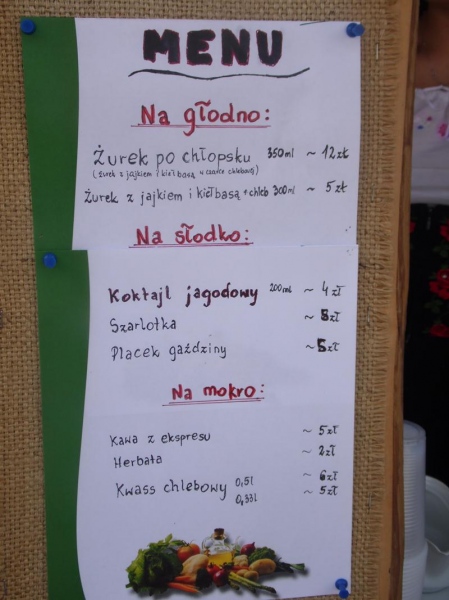 MENU
Na głodno:
Żurek po chłopsku 350ml ~ 12zł
(żurek z jajkiem i kiełbasą w czarce chlebowej)
Żurek z jajkiem i kiełbasą + chleb 300ml ~ 5 zł
Na słodko:
Koktajl jagodowy 200ml ~ 4 zł
Szarlotka ~ 5zł
Placek gaździny ~ 5zł
Na mokro:
Kawa z ekspresu ~ 5zł
Herbata ~ 2zł
Kwass chlebowy 0,5l ~ 6zł
0,33l ~ 5zł